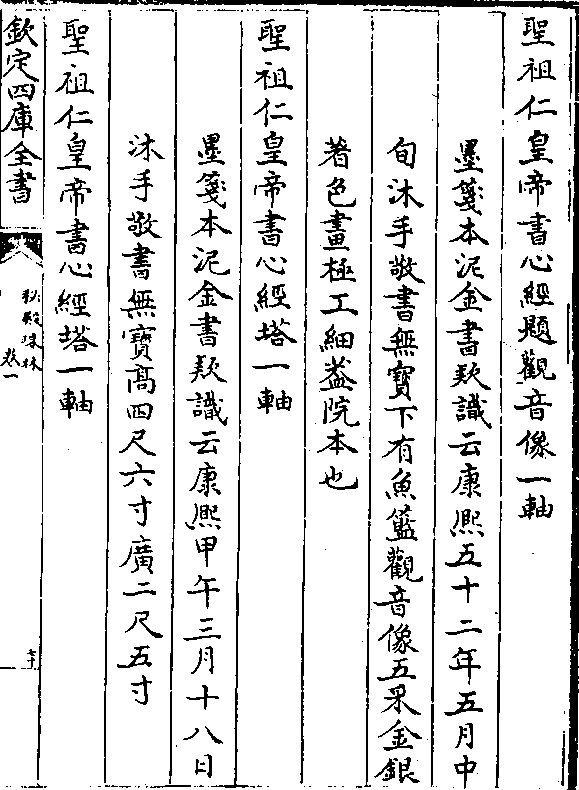 聖祖仁皇帝書心經題觀音像一軸
墨箋本泥金書欵識云康熈五十二年五月中
旬沐手敬書無寶下有魚籃觀音像五采金銀
著色畫極工細葢院本也
聖祖仁皇帝書心經塔一軸
墨箋本泥金書欵識云康熈甲午三月十八日
沐手敬書無寶高四尺六寸廣二尺五寸
聖祖仁皇帝書心經塔一軸
欽定四庫全書
秘殿珠林
卷一